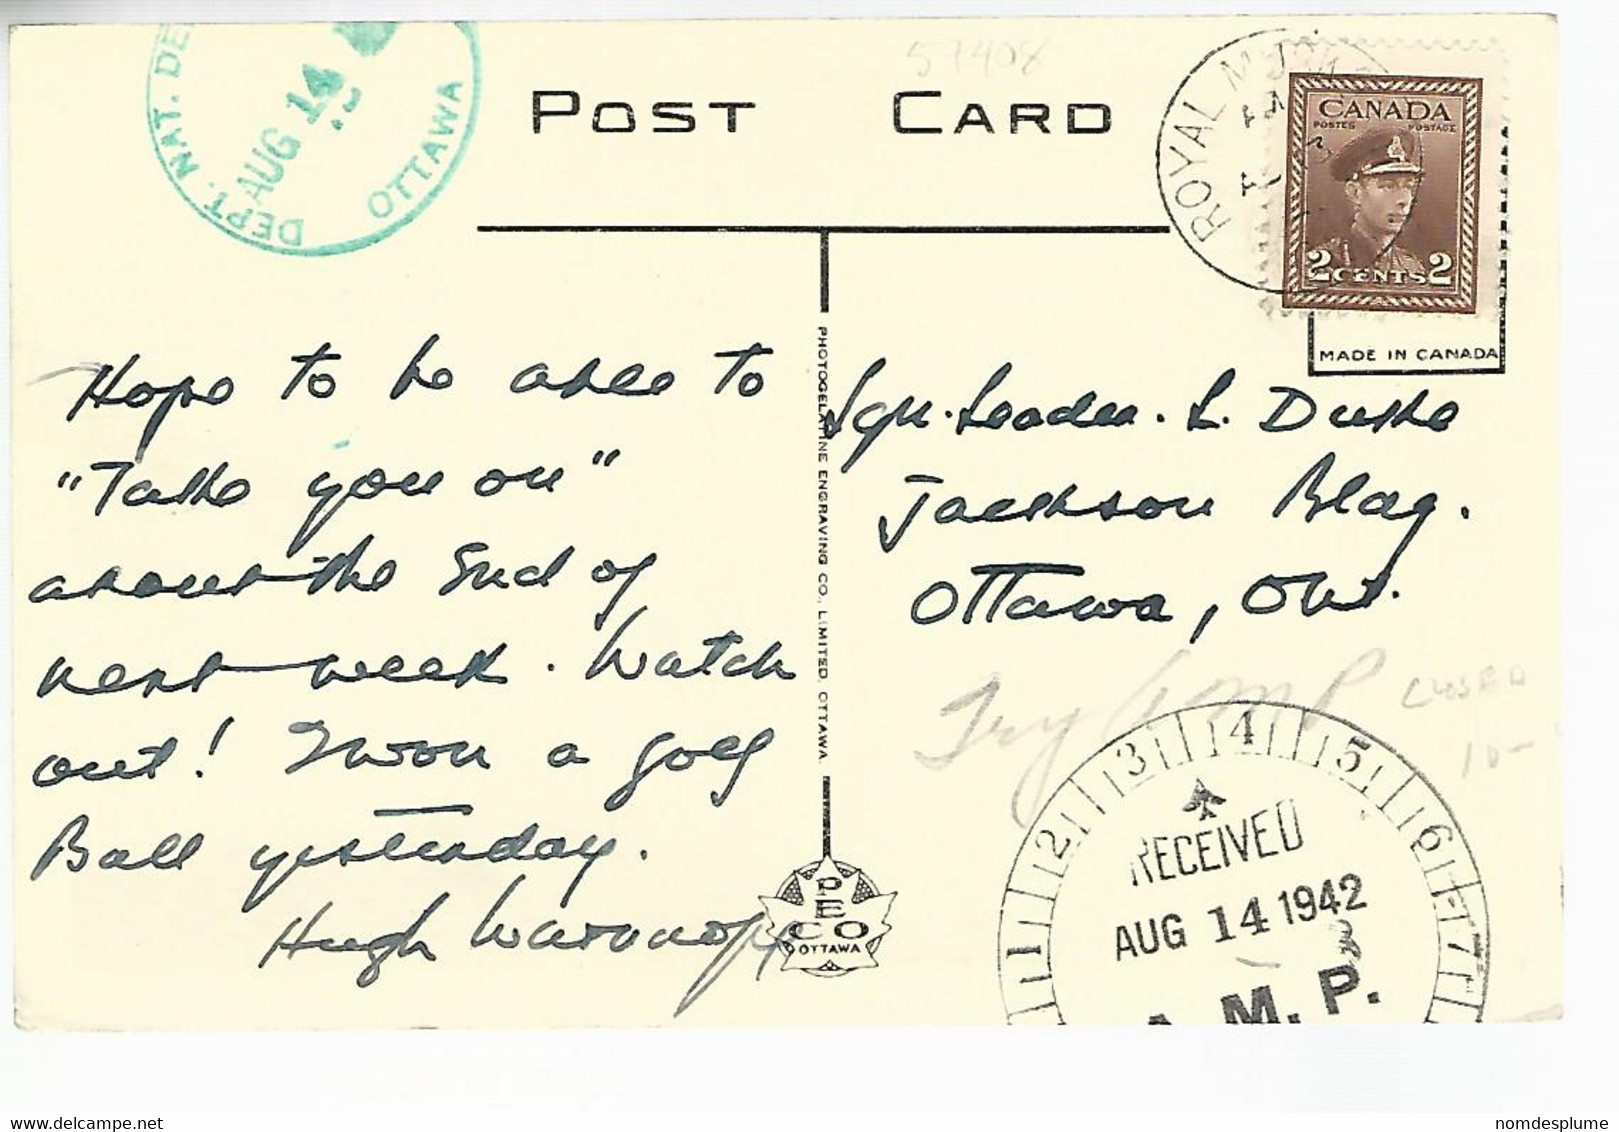 DEPT. NAT. DE
AUG 14
OTTAWA
57408
POST CARD
ROYAL
CANADA
POSTES POSTAGE
2 CENTS 2
MADE IN CANADA
Hope to be able to
"Take you on"
about the End of
next week. Watch
out! I won a golf
Ball yesterday.
Hugh
PHOTOGELATINE ENGRAVING CO., LIMITED, OTTAWA.
PECO
OTTAWA
Sqn. Leader. L. Duke
Jackson Bldg.
Ottawa, Ont.
Try AMP
CLOSED
10-
1 2 3 4 5 6 7
RECEIVED
AUG 14 1942
A. M. P.
nomdesplume